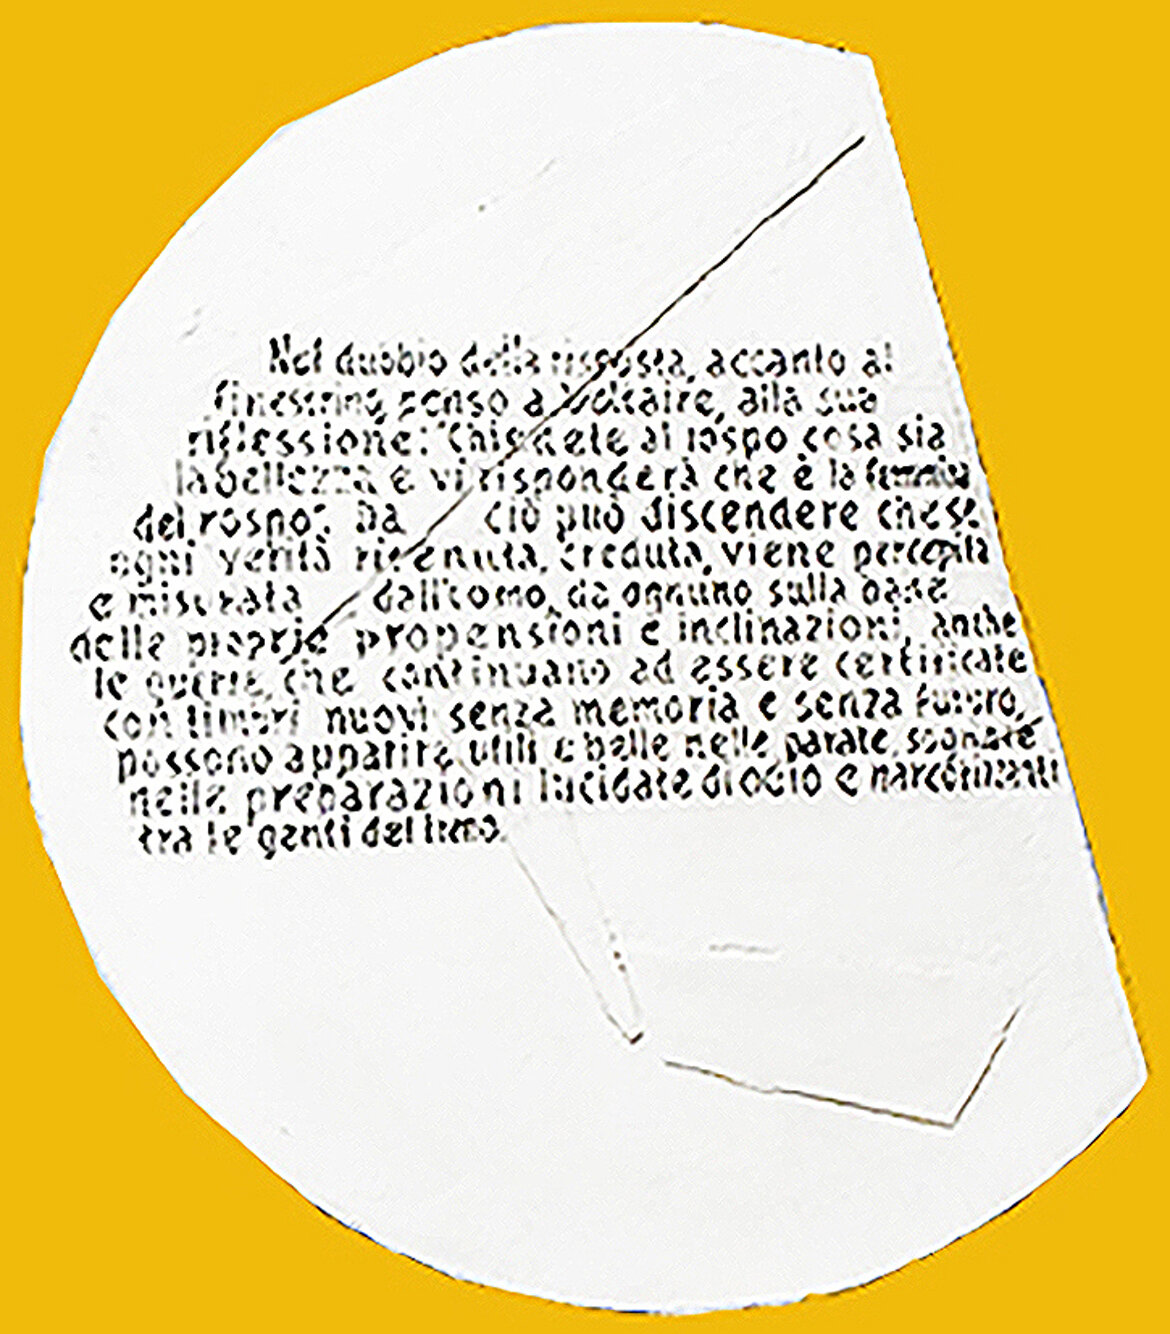 Nel dubbio della risposta, accanto al
finestrino penso a Voltaire, alla sua
riflessione: "Chiedete al rospo cosa sia
la bellezza e vi risponderà che è la femmina
del rospo". Da ciò può discendere che se
ogni verità ritenuta, creduta, viene percepita
e misurata dall'uomo, da ognuno sulla base
delle proprie propensioni e inclinazioni, anche
le guerre, che continuano ad essere certificate
con timbri nuovi senza memoria e senza futuro,
possono apparire utili e belle nelle parate, sognate
nelle preparazioni lucidate di odio e narcotizzanti
tra le genti del